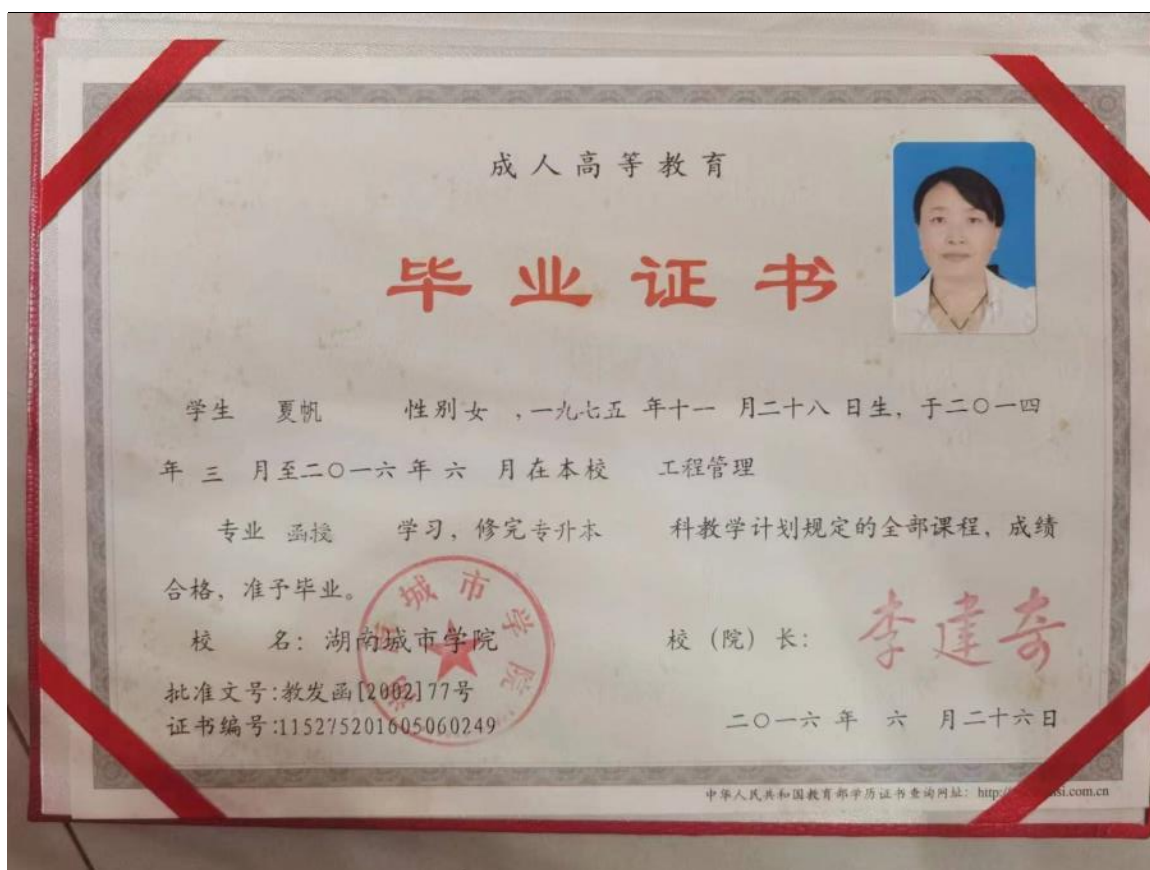 成人高等教育
毕业证书
学生 夏帆 性别女 ,一九七五 年十一 月二十八 日生, 于二〇一四
年 三 月至二〇一六 年 六 月在本校 工程管理
专业 函授 学习, 修完专升本 科教学计划规定的全部课程, 成绩
合格, 准予毕业。
校 名: 湖南城市学院 校 (院) 长: 李建奇
批准文号:教发函[2002]77号
证书编号:115275201605060249
二〇一六 年 六 月二十六日
城市学院
中华人民共和国教育部学历证书查询网址: http:/ si.com.cn